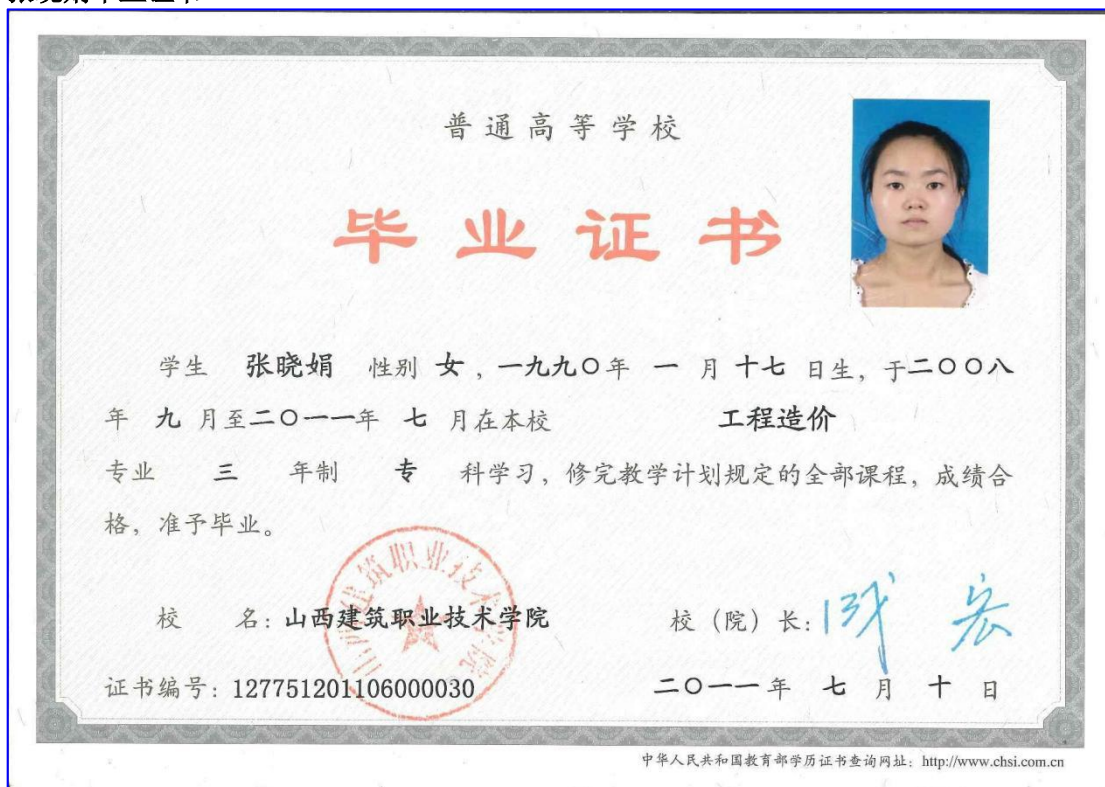 普通高等学校
毕业证书
学生 张晓娟 性别 女，一九九〇年 一 月 十七 日生，于二〇〇八
年 九 月至二〇一一年 七 月在本校 工程造价
专业 三 年制 专 科学习，修完教学计划规定的全部课程，成绩合
格，准予毕业。
校 名：山西建筑职业技术学院 校（院）长：
证书编号：127751201106000030 二〇一一年 七 月 十 日
山西建筑职业技术学院
中华人民共和国教育部学历证书查询网址：http://www.chsi.com.cn